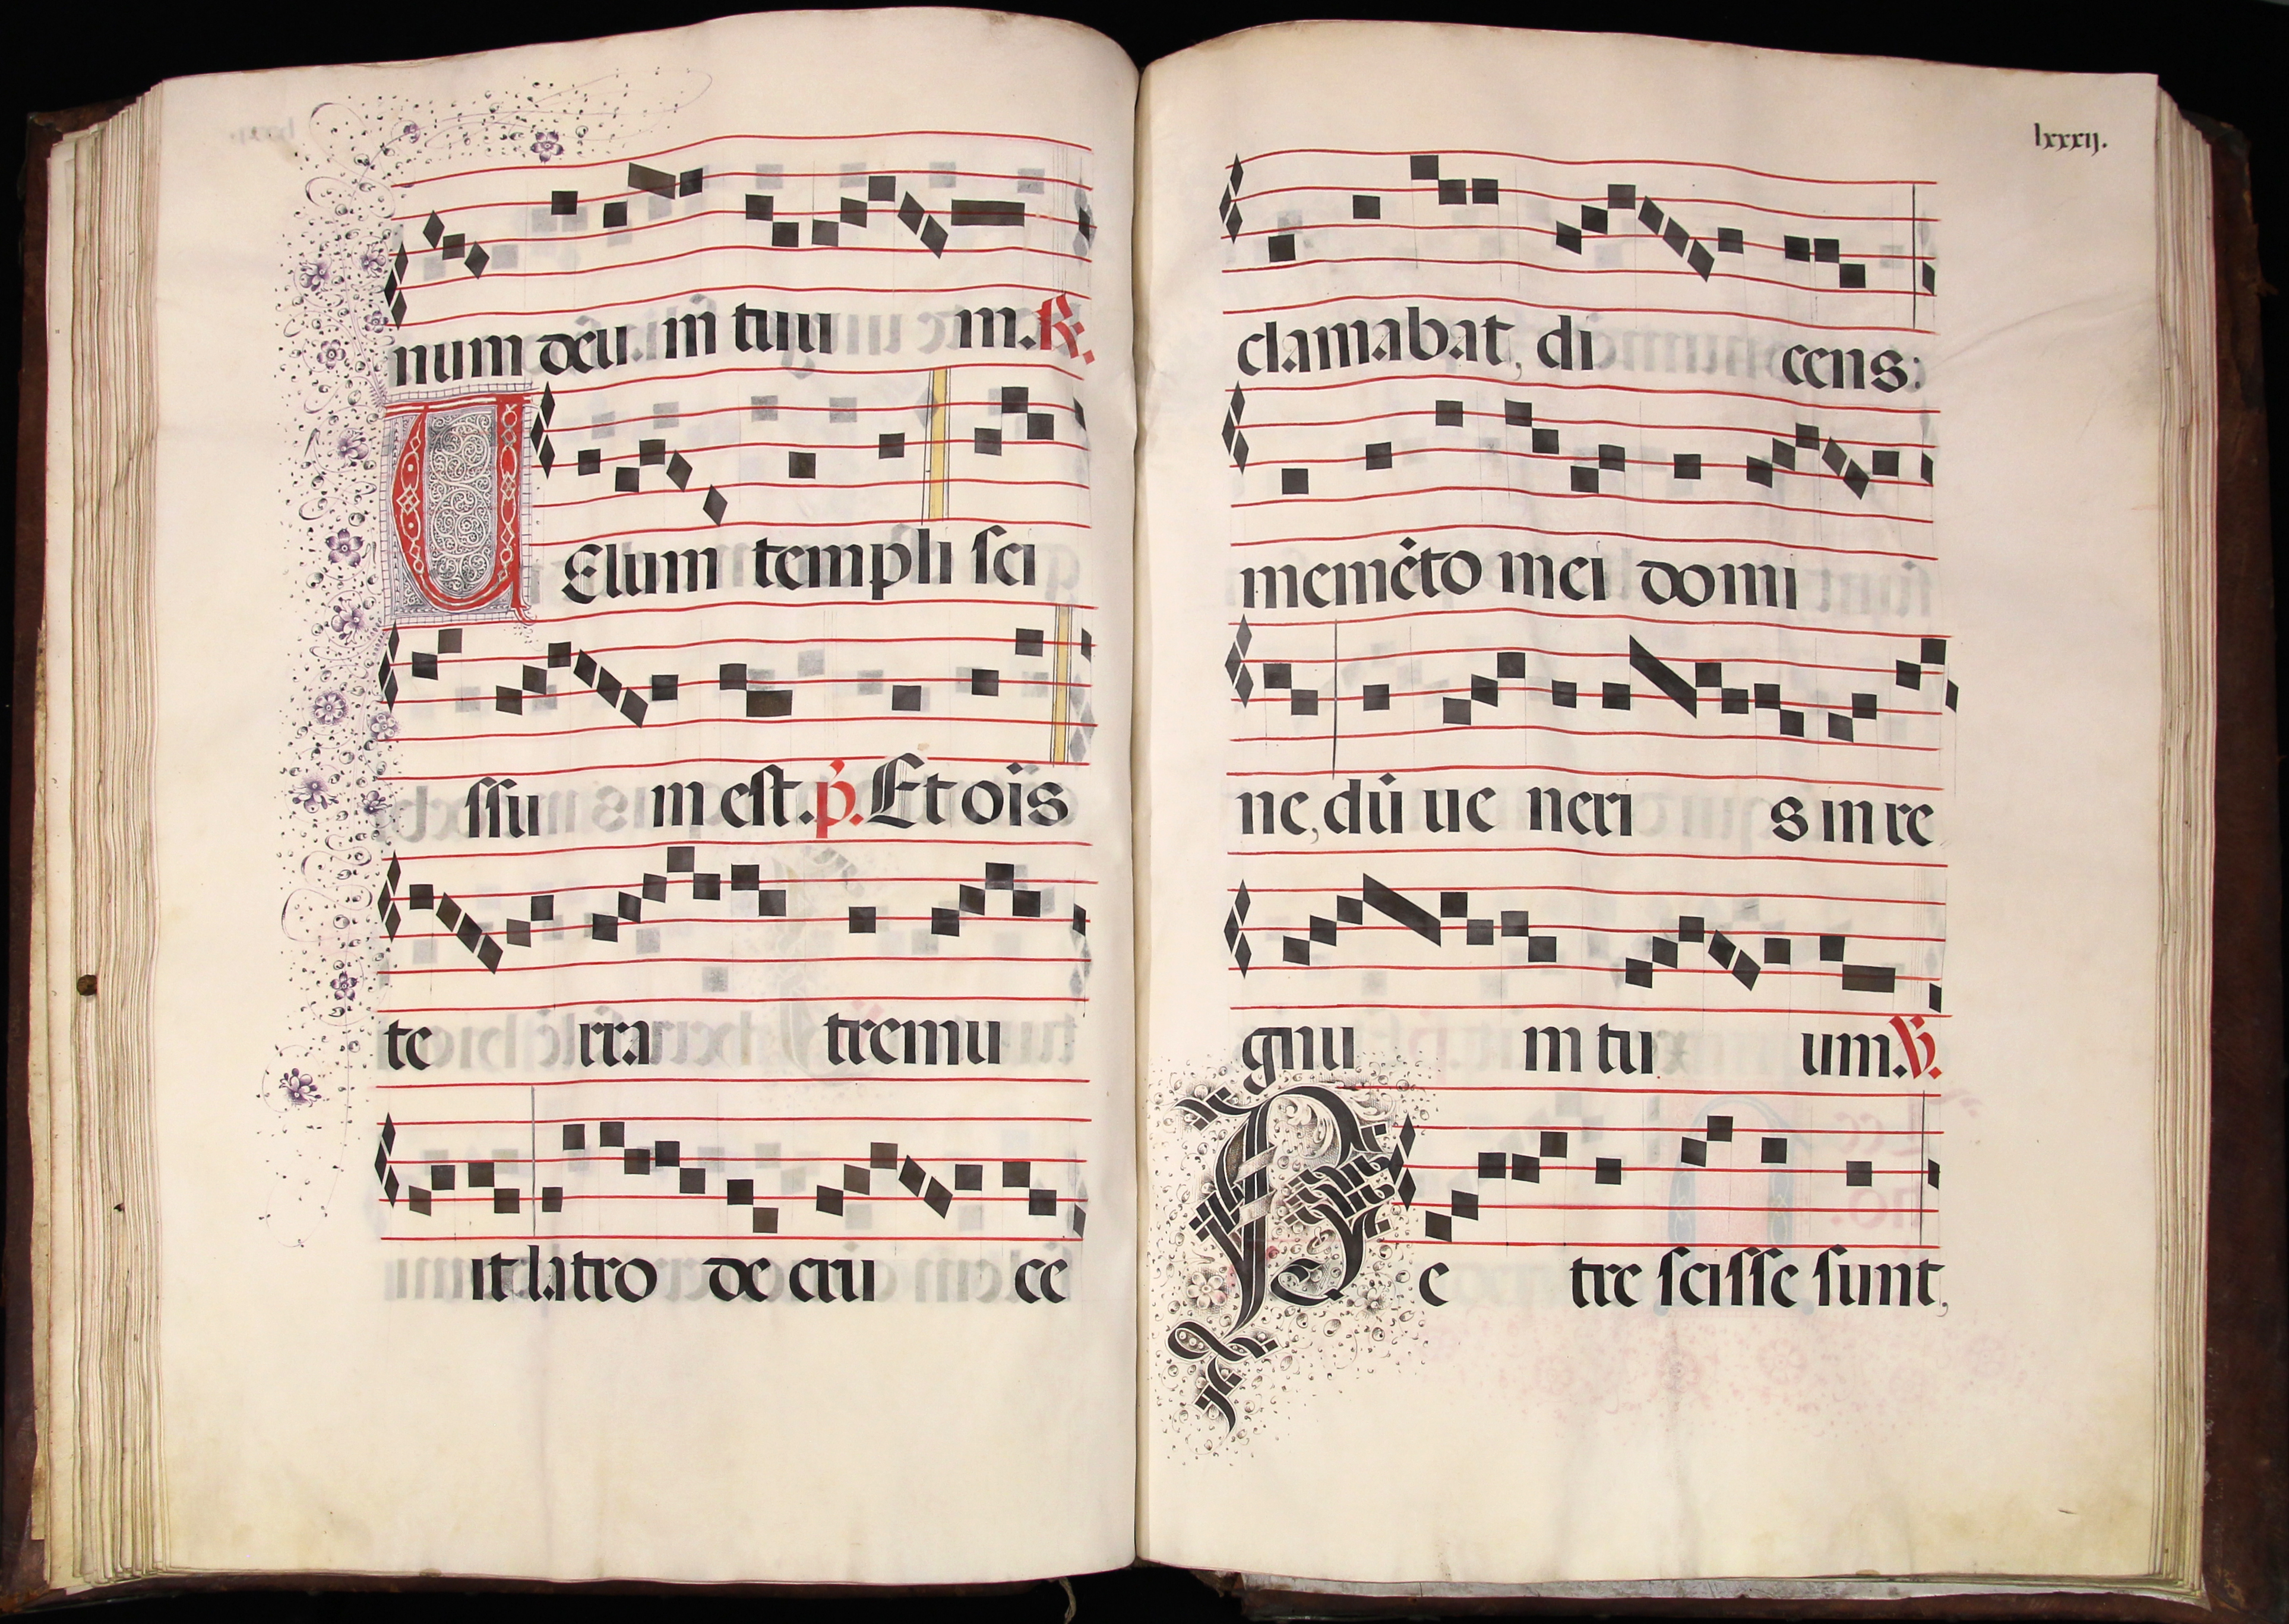 num deu. in tuu m. R.
VElum templi sci
ssu m est. p. Et oïs
te rra tremu
it latro de cru ce
lxxxij.
clamabat, di cens:
memēto mei domi
ne, dū ue neri s in re
gnu m tu um. V.
Pe tre scisse sunt,